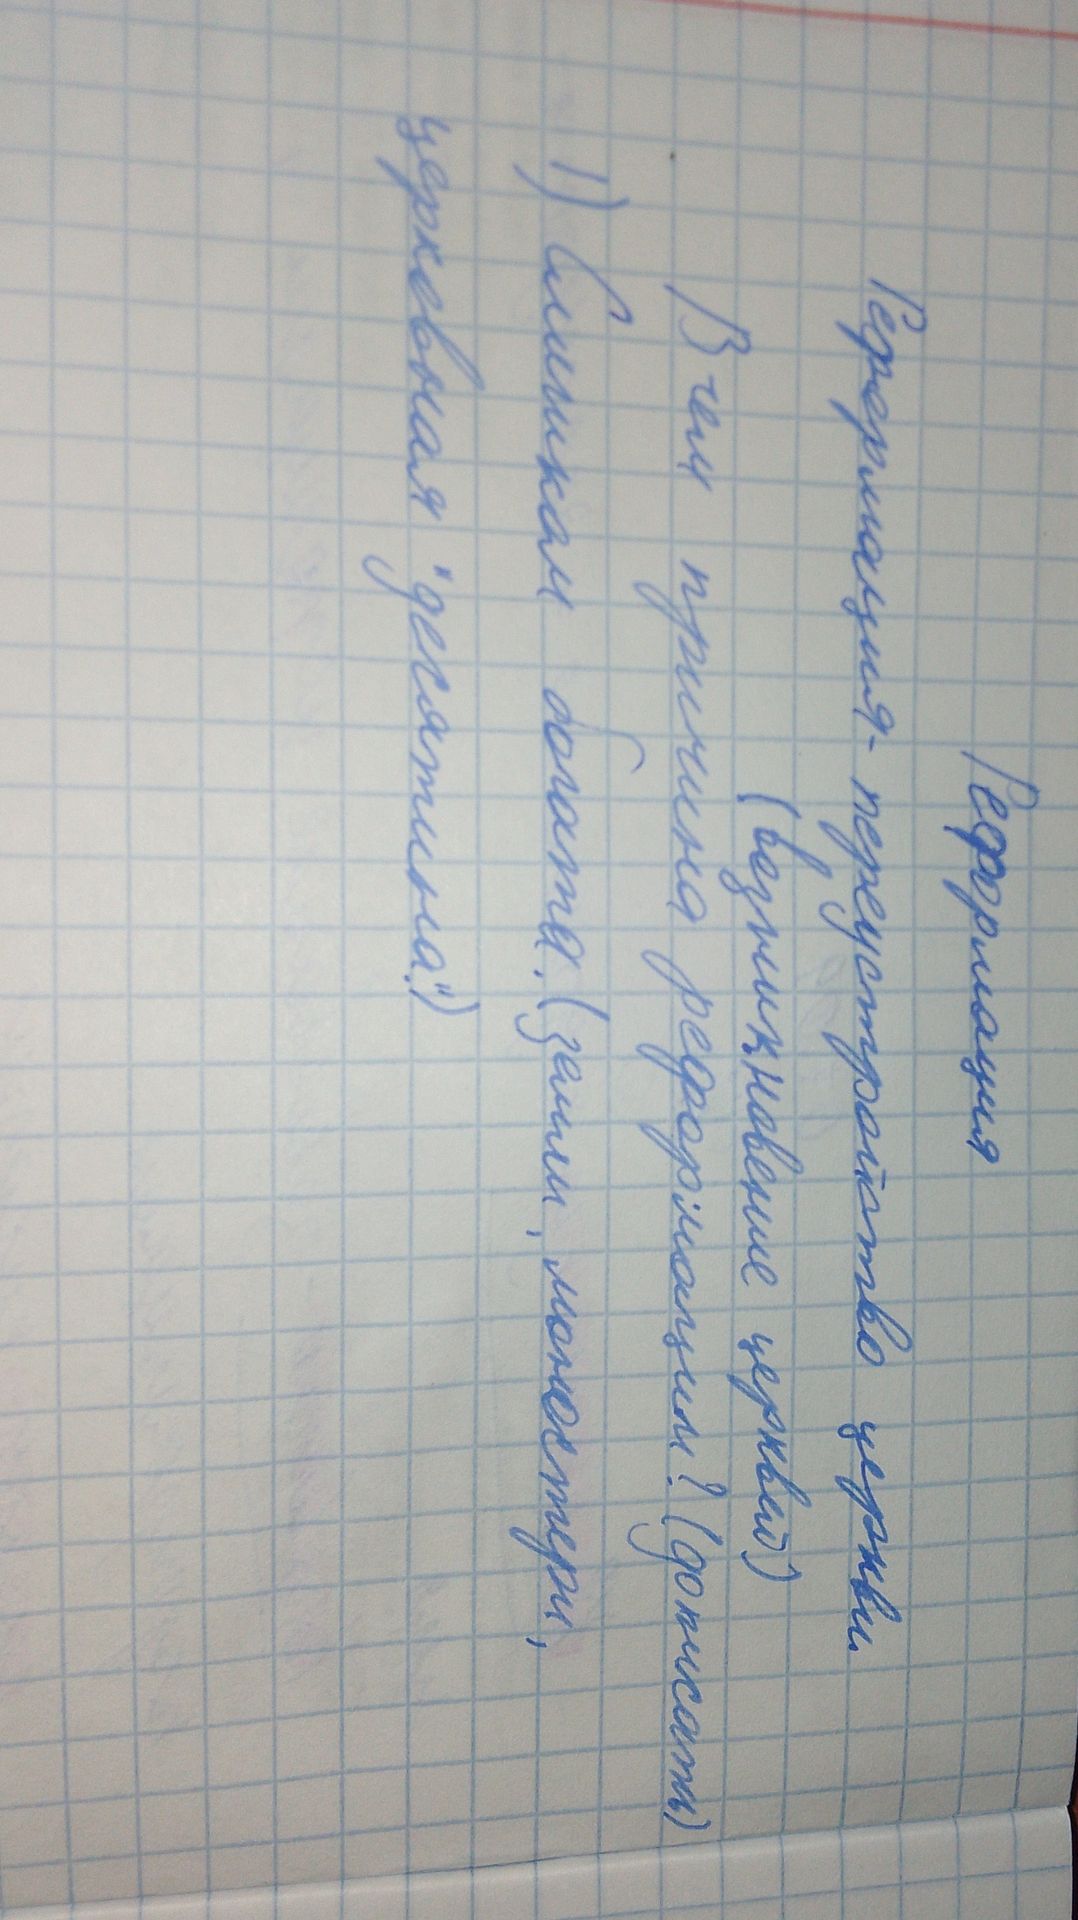 Реформация
Реформация - переустройство церкви
(возникновение церквей)
В чем причина реформации? (дописать)
1) Слишком богата. (земли, монастери,
церковная "десятина".)